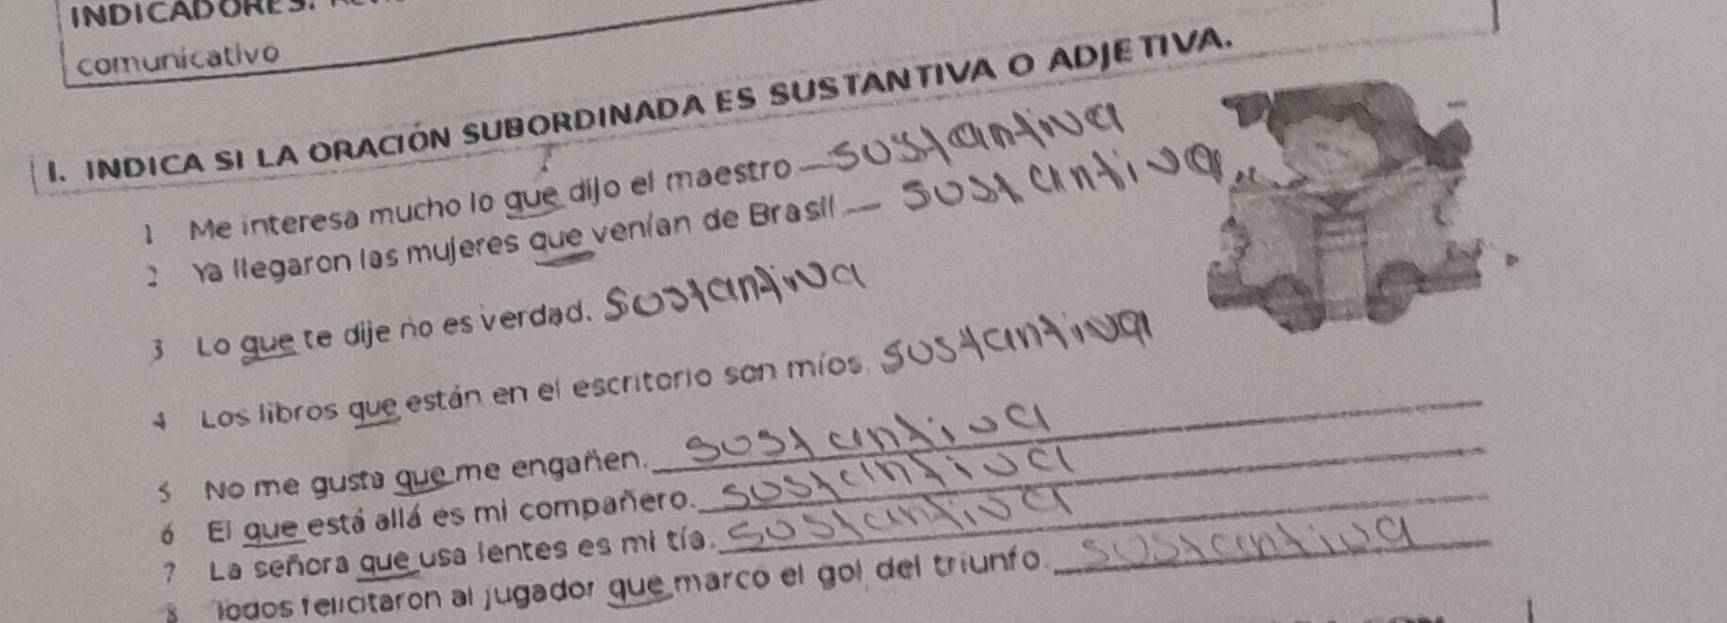 INDICADORES:
comunicativo
I. INDICA SI LA ORACIÓN SUBORDINADA ES SUSTANTIVA O ADJETIVA.
1 Me interesa mucho lo que dijo el maestro sustantiva
2 Ya llegaron las mujeres que venían de Brasil. sustantiva
3 Lo que te dije no es verdad. Sustantiva
4 Los libros que están en el escritorio son míos. sustantiva
5 No me gusta que me engañen. sustantiva
6 El que está allá es mi compañero. sustantiva
7 La señora que usa lentes es mi tía. sustantiva
8 Todos felicitaron al jugador que marco el gol del triunfo. sustantiva